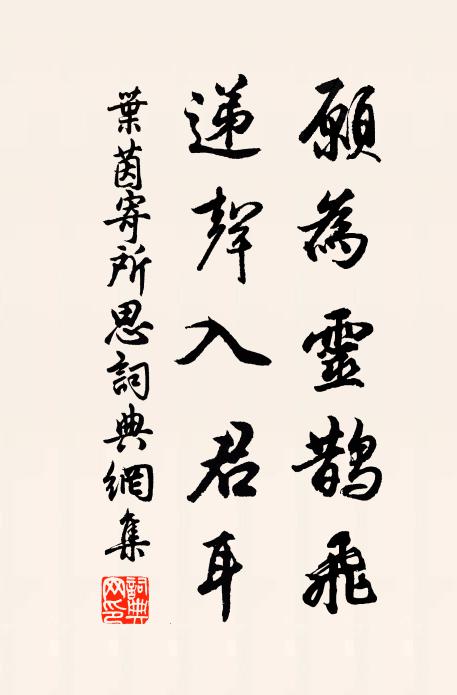 願為靈鵲飛
遞聲入君耳
葉茵寄所思詞典網集
詞典網印